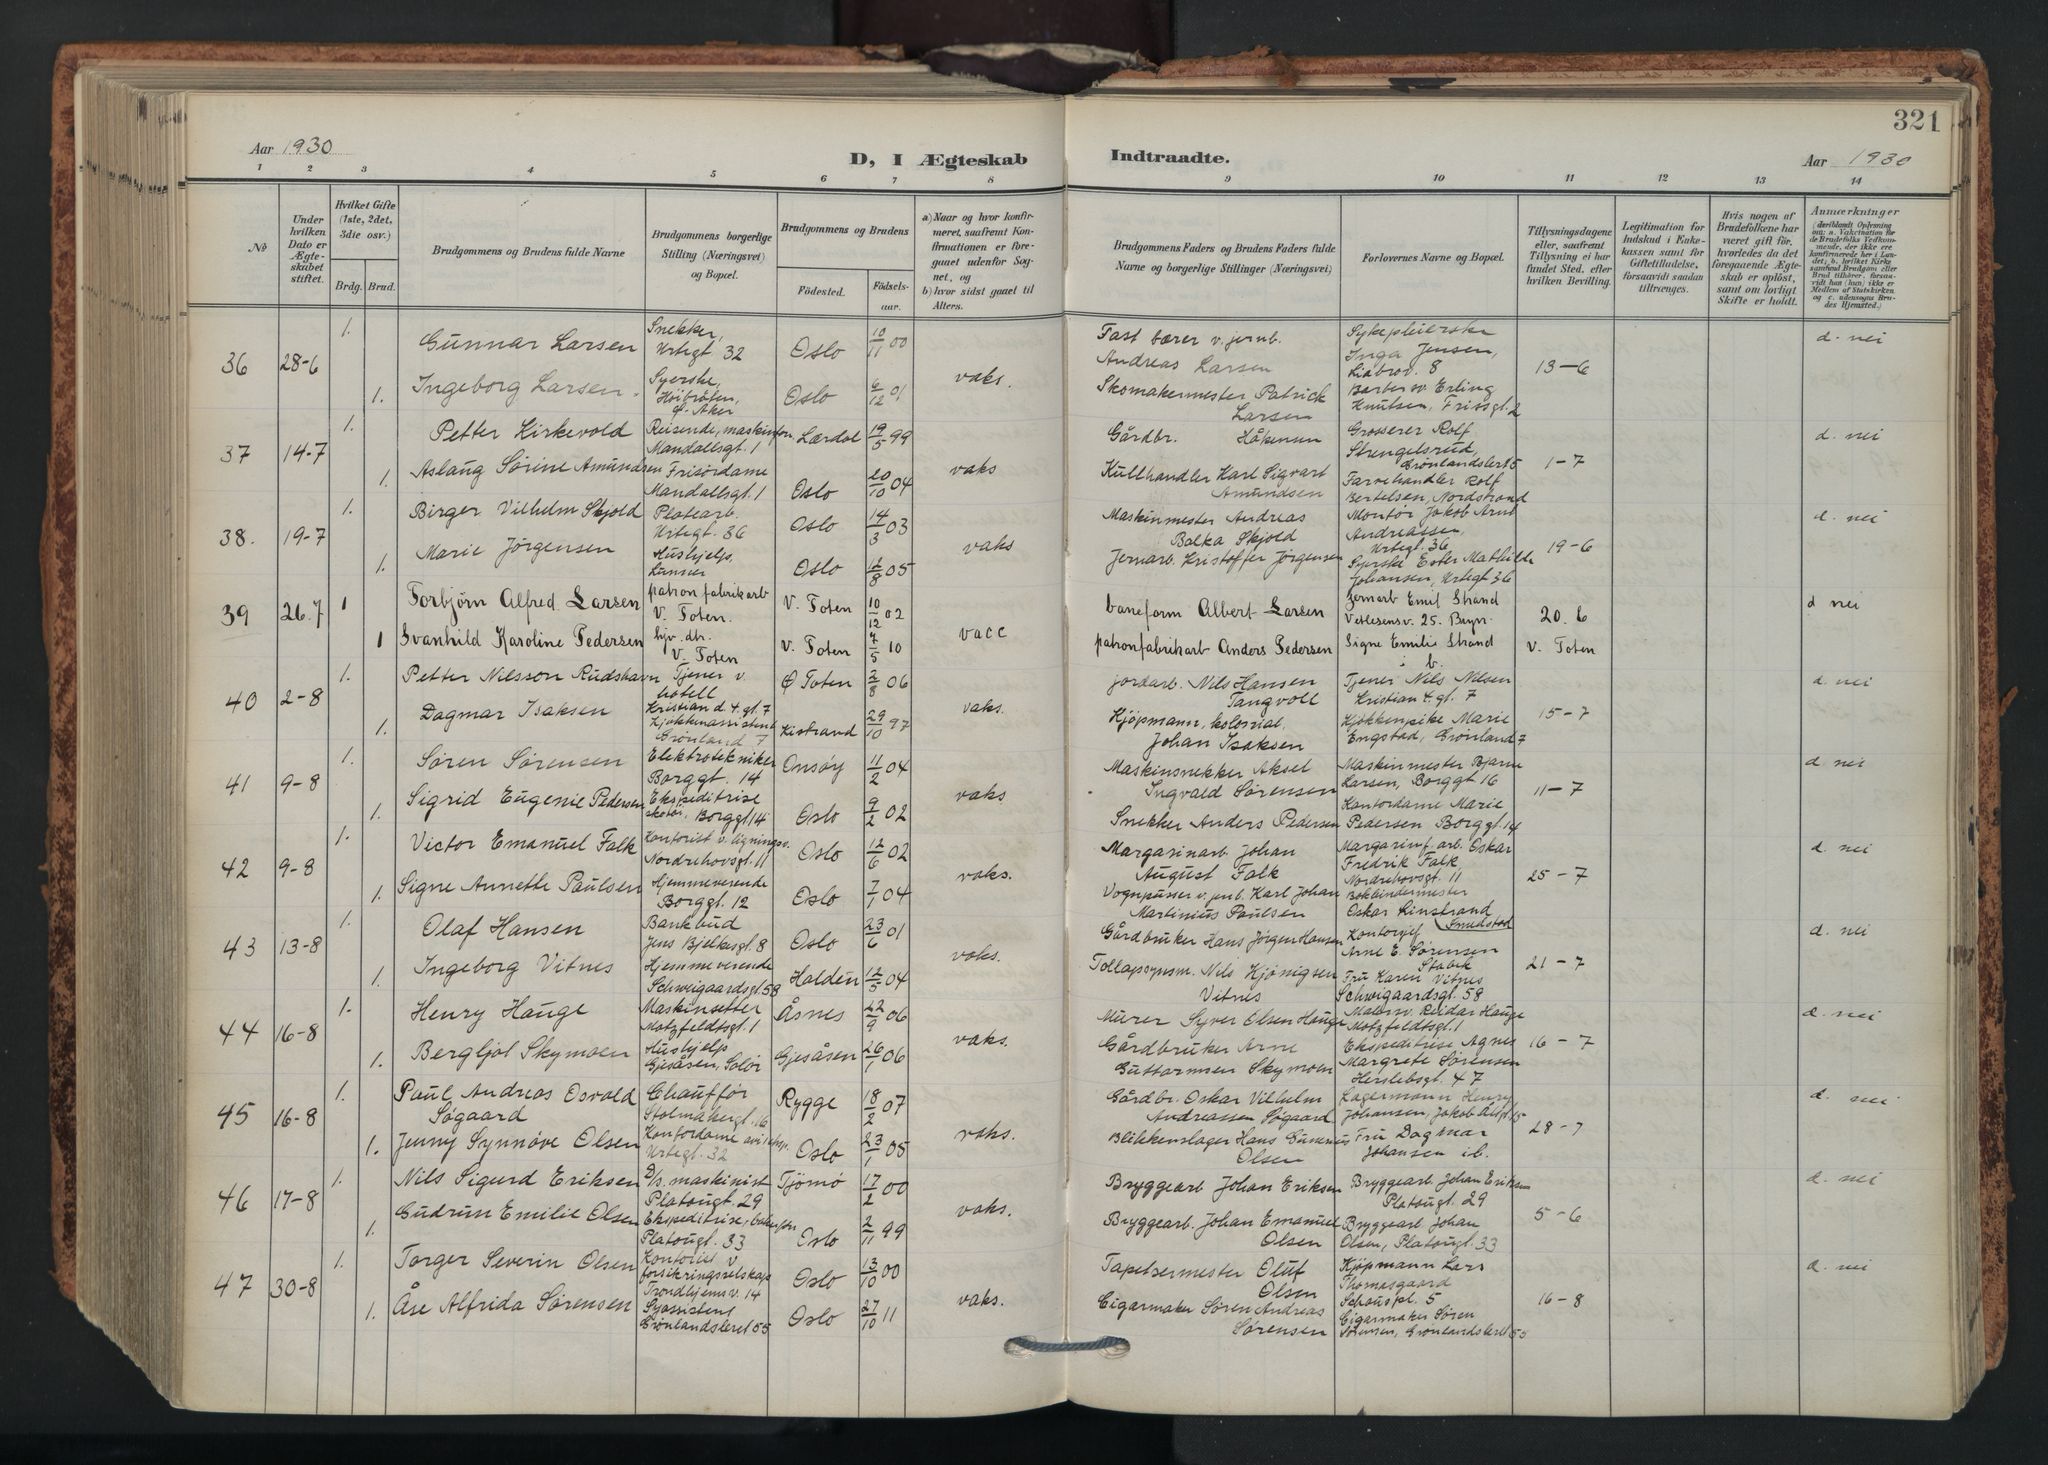 321
Aar 1930
D, I Ægteskab
Indtraadte.
Aar 1930
1 2 3 4 5 6 7 8 9 10 11 12 13 14
No
Under hvilken Dato er Ægteskabet stiftet.
Hvilket Gifte (1ste, 2det, 3die osv.)
Brdg. Brud.
Brudgommens og Brudens fulde Navne
Brudgommens borgerlige Stilling (Næringsvei) og Bopæl.
Brudgommens og Brudens
Födested. Födselsaar.
a) Naar og hvor konfirmeret, saafremt Konfirmationen er foregaaet udenfor Sognet, og
b) hvor sidst gaaet til Alters.
Brudgommens Faders og Brudens Faders fulde Navne og borgerlige Stillinger (Næringsvei)
Forlovernes Navne og Bopæl.
Tillysningsdagene eller, saafremt Tillysning ei har fundet Sted, efter hvilken Bevilling.
Legitimation for Indskud i Enkekassen samt for Giftetilladelse, forsaavidt saadan tiltrænges.
Hvis nogen af Brudefolkene har været gift för, hvorledes da det foregaaende Ægteskab er oplöst, samt om lovligt Skifte er holdt.
Anmærkninger (deriblandt Oplysning om: a. Vakcination for de Brudefolks Vedkommende, der ikke ere konfirmerede her i Landet; b. hvilket Kirkesamfund Brudgom eller Brud tilhörer, forsaavidt han (hun) ikke er Medlem af Statskirken og c. udensogns Brudes Hjemsted.)
36 28-6 1. Gunnar Larsen Snekker, Urtegt. 32 Oslo 10/11 00 vaks. Fast bærer v. jernb. Andreas Larsen Sykepleierske Inga Jensen, Liabrov. 8 13-6 d. nei
1. Ingeborg Larsen. Syerske, Høibråten, Ø. Aker Oslo 6/12 01 Skomakermester Patrick Larsen Barbersv. Erling Knutsen, Friisgt. 2
37 14-7 1. Petter Kirkevold Reisende, maskinforr. Mandallsgt. 1 Lærdal 19/5 99 vaks Gårdbr. Håkenun Grosserer Rolf Strengelsrud, Grønlandsleret 5 1-7 d. nei
1. Aslaug Sørine Amundsen Frisørdame Mandallsgt. 1 Oslo 20/10 04 Kullhandler Karl Sigvart Amundsen Farvehandler Rolf Bertelsen, Nordstrand
38. 19-7 1. Birger Vilhelm Skjold Platearb. Urtegt. 36 Oslo 14/3 03 vaks Maskinmester Andreas Balka Skjold Montør Jakob Arnt Andreassen Urtegt. 36 19-6 d. nei
1. Marie Jörgensen Hushjelp, Lunner Oslo 12/8 05 Jernarb. Kristoffer Jörgensen Syerske Ester Mathilde Johansen, Urtegt 36
39 26.7 1 Torbjörn Alfred Larsen patronfabrikarb V. Toten. V. Toten 10/12 02 vacc baneform Albert Larsen Jernarb Emil Strand Vetlesensv. 25. Bryn. 20. 6 d nei
1 Svanhild Karoline Pedersen hjv. dtr. V. Toten V. Toten 4/5 10 patronfabrikarb Anders Pedersen Signe Emilie Strand i b. V. Toten
40 2-8 1. Petter Nilsson Rudshavn Tjener v. hotell Kristian d. 4. gt. 7 Ø Toten 2/8 06 vaks. jordarb. Nils Hansen Tangvoll Tjener Nils Nilsen Kristian 4. gt. 7 15-7 d. nei
1. Dagmar Isaksen Kjøkkenassistent Grønland 7 Kistrand 29/10 97 Kjöpmann, kolonial, Johan Isaksen Kjøkkenpike Marie Engstad, Grønland 7
41 9-8 1. Søren Sørensen Elektrotekniker Borggt. 14 Onsøy 11/2 04 vaks Maskinsnekker Aksel Ingvald Sørensen Maskinmester Bjarne Larsen, Borggt 16 11-7 d nei
1. Sigrid Eugenie Pedersen Ekspeditrise skotøi, Borggt. 14 Oslo 9/2 02 Snekker Anders Pedersen Kontordame Marie Pedersen Borggt. 14
42 9-8 1. Victor Emanuel Falk Kontorist v. ligningsv. Nordrehovsgt. 11 Oslo 12/6 02 vaks. Margarinarb. Johan August Falk Margarinf. arb. Oskar Fredrik Falk Nordrehovsgt. 11 25-7 d. nei
1. Signe Annette Paulsen Hjemmeværende Borggt. 12 Oslo 7/1 04 Vognpusser v. jenb. Karl Johan Martinius Paulsen Bokbindermester Oskar Linstrand Smedstad
43 13-8 1. Olaf Hansen Bankbud Jens Bjelkesgt. 8 Oslo 23/6 01 vaks. Gårdbruker Hans Jörgen Hansen Kontorsjef Arne E. Sørensen Stabek 21-7 d. nei
1. Ingeborg Vitnes Hjemmeverende Schweigaardsgt. 58 Halden 12/5 04 Tollopsynsm. Nils Kjönigsen Vitnes Fru Karen Vitnes Schweigaardsgt. 58
44 16-8 1. Henry Hauge Maskinsetter Motzfeldtsgt. 1 Åsnes 22/9 06 vaks. Murer Syver Olsen Hauge Malersv. Reidar Hauge Motzfeldtsgt. 1 16-7 d. nei
1. Bergljot Skymoen Hushjelp Gjesåsen, Solør Gjesåsen 26/1 06 Gårdbruker Arne Guttormsen Skymoen Ekspeditrise Agnes Margrete Sørensen Herslebsgt. 47
45 16-8 1. Paul Andreas Osvald Søgaard Chauffør Stolmakergt. 16 Rygge 18/2 07 vaks. Gårdbr. Oskar Vilhelm Andreassen Søgaard Lagermann Henry Johansen, Jakob Allsgt. 15 28-7 d. nei
1. Jenny Synnøve Olsen Kontordame Urtegt. 32 Oslo 23/1 05 Blikkenslager Hans Gunerius Olsen Fru Dagmar Johansen i b.
46 17-8 1. Nils Sigurd Eriksen D/s. maskinist Platougt. 29 Tjömø 17/2 00 vaks. Bryggearb Johan Eriksen Bryggearb. Johan Eriksen Platougt. 29 5-6 d. nei
1. Gudrun Emilie Olsen Ekspeditrise, bakerforr. Platougt. 33 Oslo 2/11 99 Bryggearb. Johan Emanuel Olsen Bryggearb. Johan Olsen, Platougt. 33
47 30-8 1. Torger Severin Olsen Kontorist v forsikringsselskap Trondhjemsv. 14 Oslo 13/10 00 vaks. Tapetsermester Oluf Olsen Kjøpmann Lars Thomasgaard Schouspl. 5 16-8 d. nei
1. Åse Alfrida Sørensen Syassistent Grønlandsleret 55 Oslo 27/10 11 Cigarmaker Søren Andreas Sørensen Cigarmaker Søren Sørensen, Grønlandsleret 55